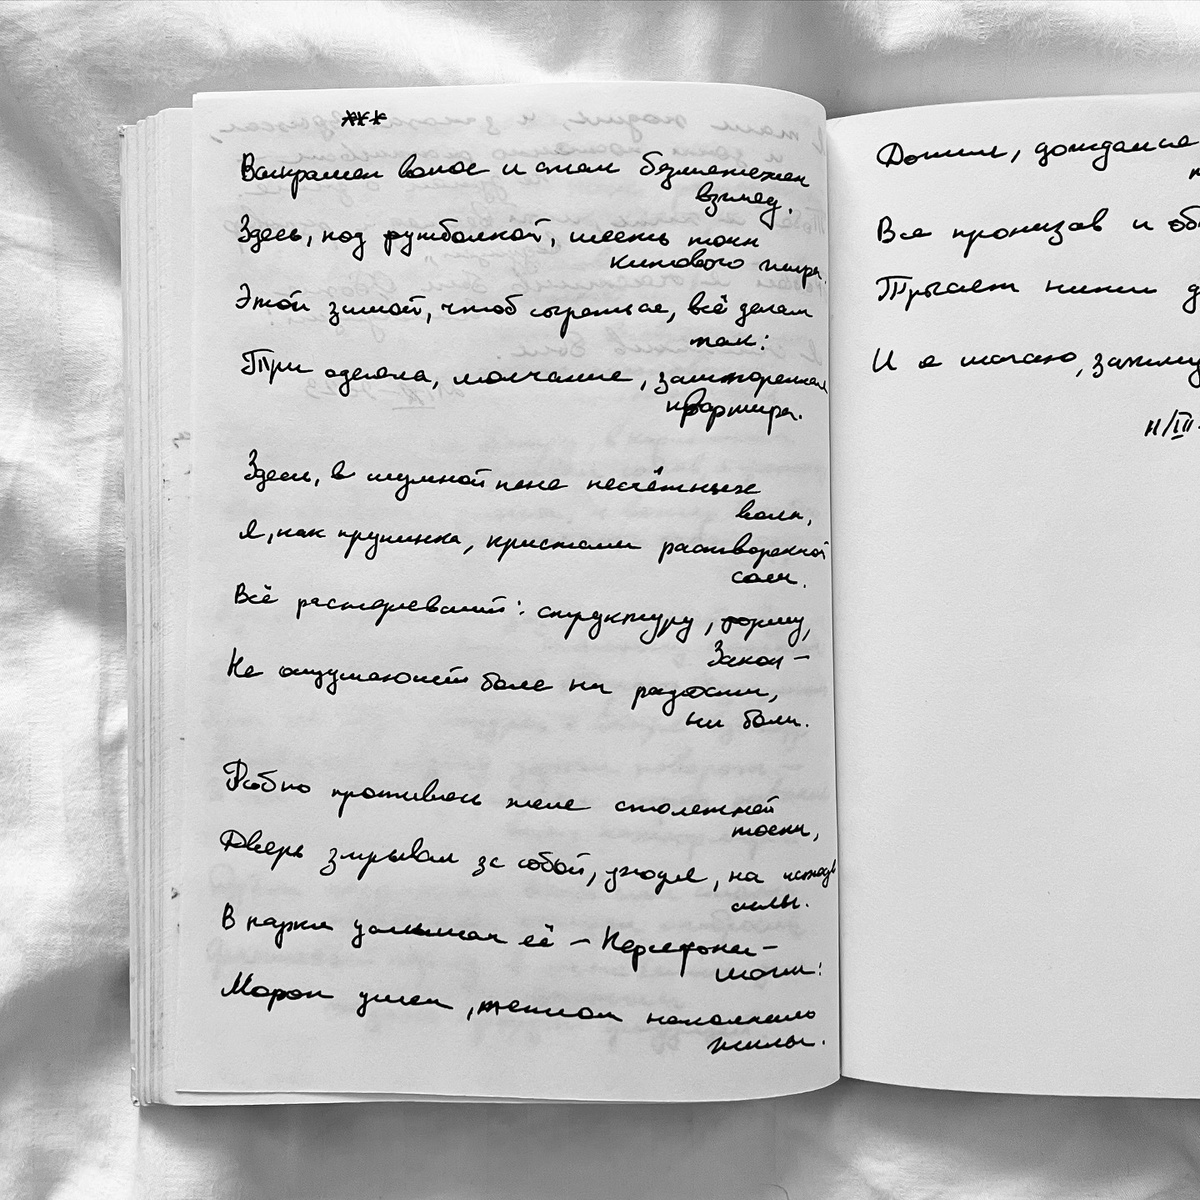 ***
Выкрашен волос и стал безмятежен
взгляд.
Здесь, под футболкой, шесть тонн
китового жира.
Этой зимой, чтоб согреться, всё делал
так:
Три одеяла, молчание, зашторенная
квартира.
Здесь, в шумной пене несчётных
волн,
Я, как крупинка, кристалл растворенной
соли.
Всё растерявший: структуру, форму,
Закон –
Не ощущающий боле ни радости,
ни боли.
Робко противясь желе столетней
тоски,
Дверь закрывал за собой, уходя, на исходе
силы.
В парке услышал её – Персефоны –
шаги:
Морок ушел, теплом наполнило
жилы.
Дошли, дождался
Все пронизав и
Трогает ними
И я шагаю,
11/III